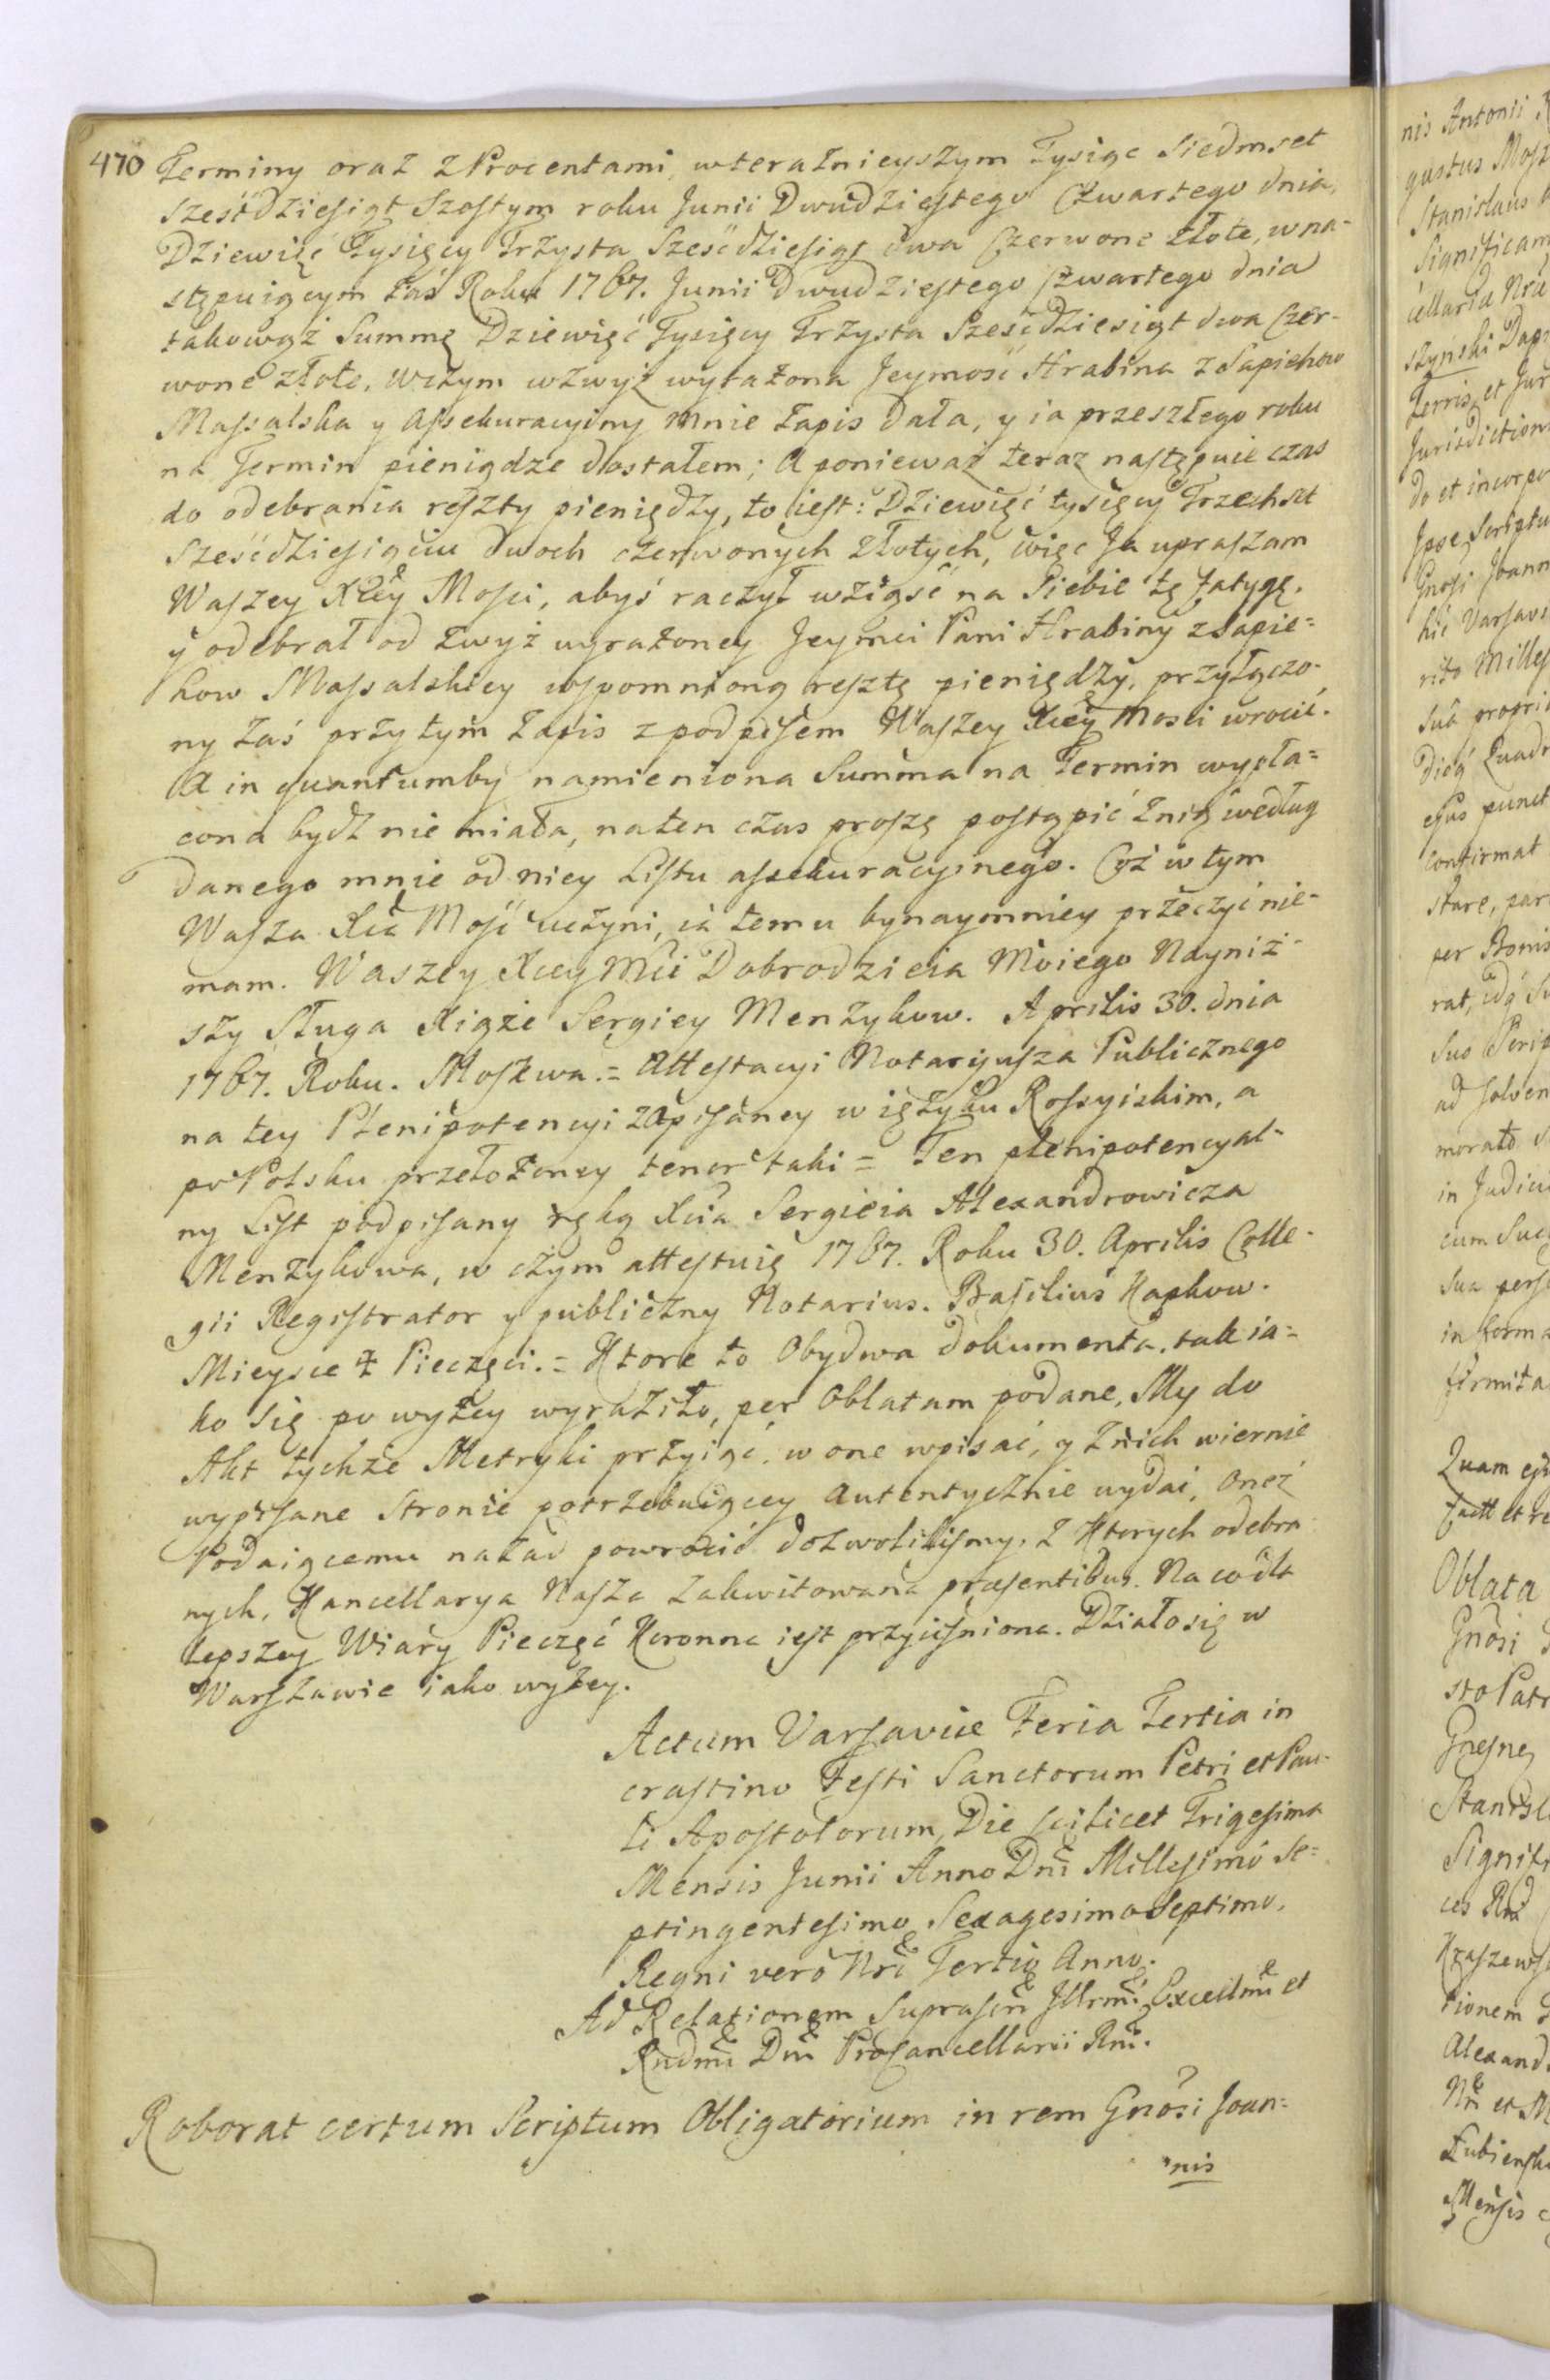 470 Terminy oraz z Procentami, w teraznieyszym Tysiąc Siedmset
Sześćdziesiąt Szostym roku Junii Dwudziestego Czwartego dnia,
Dziewięć Tysięcy Trzysta Sześćdziesiąt dwa Czerwone złote, w na-
stępuiącym zaś Roku 1767. Junii Dwudziestego Czwartego dnia
takowąż Summę Dziewięć Tysięcy Trzysta Sześćdziesiąt dwa Czer-
wone złote, w czym wzwyż wyrażona Jeymość Hrabina z Sapiehow
Massalska y Assekuracyiny mnie zapis dała, y ia przeszłego roku
na Termin pieniądze dostałem; A ponieważ teraz następuie czas
do odebrania reszty pieniędzy, to iest: Dziewięć tysięcy Trzechset
Sześćdziesiąciu dwoch czerwonych złotych, więc Ja upraszam
Waszey Xcey Mosci, abyś raczył wziąść na Siebie tę fatygę,
y odebrał od zwyż wyrażoney Jeymci Pani Hrabiny z Sapie=
how Massalskiey wspomnioną resztę pieniędzy, przyłączo-
ny zaś przytym zapis z podpisem Waszey Xcey Mosci wrocić.
A in quantumby namieniona Summa na Termin wypła=
cona bydź nie miała, na ten czas proszę postąpić z nią według
danego mnie od niey Listu assekuracyinego. Coż w tym
Wasza Xca Mość uczyni, ia temu bynaymniey przeczyć nie-
mam. Waszey Xcey Mci Dobrodzieia Moiego Nayniż-
szy Sługa Xiąże Sergiey Menzykow. Aprilis 30. dnia
1767. Roku. Moskwa.= Attestacyi Notaryusza Publicznego
na tey Plenipotencyi zapisaney w ięzyku Rossyiskim, a
po Polsku przełożoney tenor taki = Ten plenipotencyal-
ny List podpisany ręką Xcia Sergieia Alexandrowicza
Menzykowa, w czym attestuię 1767. Roku 30. Aprilis Colle-
gii Registrator y publiczny Notarius. Basilius Kapkow.
Mieysce Pieczęci.= Ktore to Obydwa dokumenta, tak ia=
ko się powyżey wyraziło, per Oblatam podane, My do
Akt tychże Metryki przyiąć, w one wpisać, y z nich wiernie
wypisane Stronie potrzebuiącey autentycznie wydać, oneż
Podaiącemu nazad powrocić dozwolilismy. z Ktorych odebra-
nych, Kancellarya Nasza zakwitowana præsentibus. Na co dla
lepszey Wiary Pieczęć Koronna iest przyciśniona. Działo się w
Warszawie iako wyżey.
Actum Varsaviæ Feria Tertia in
crastino Festi Sanctorum Petri et Pau-
li Apostolorum, Die scilicet Trigesima
Mensis Junii Anno Dni Millesimo Se=
ptingentesimo Sexagesimo Septimo,
Regni vero Nri Tertio Anno.
Ad Relationem Suprascri Illrmi Excellmi et
Rndmi Dni Procancellarii Rni.
Roborat certum Scriptum Obligatorium in rem Gnosi Joan=
nis
nis Antonii
gustus Mosz
Stanislaus
Significam
cellariæ Nræ
szyński
Terris et Jur
Jurisdiction
do et incorpo
Ipse Scriptu
Gnosi Joann
hic Varsav
Milles
sua propria
Quadr
ejus punct
confirmat
stare, par
per Bonis
ad solven
in Judici
cum Suc
sua perso
in forma
firmita
Quam eju
Oblata
Gnosi
sto Patr
Gnesne
Stanisl
Signifi
ces
Kraszews
tionem
Alexand
Nri et M
Łubiensk
Mensis